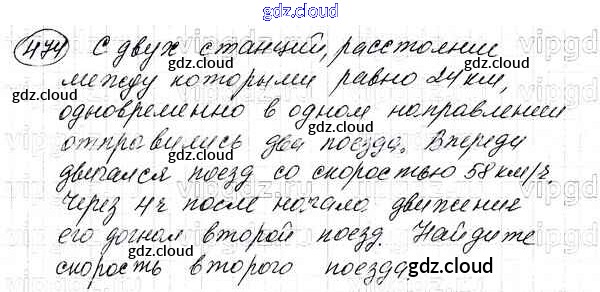 gdz.cloud
474 С двух станций, расстояние
между которыми равно 24 км,
gdz.cloud gdz.cloud
одновременно в одном направлении
отправились два поезда. Впереди
gdz.cloud gdz.cloud
двигался поезд со скоростью 58 км/ч
Через 4ч после начало движения
его догнал второй поезд. Найдите
скорость второго поезда
gdz.cloud gdz.cloud